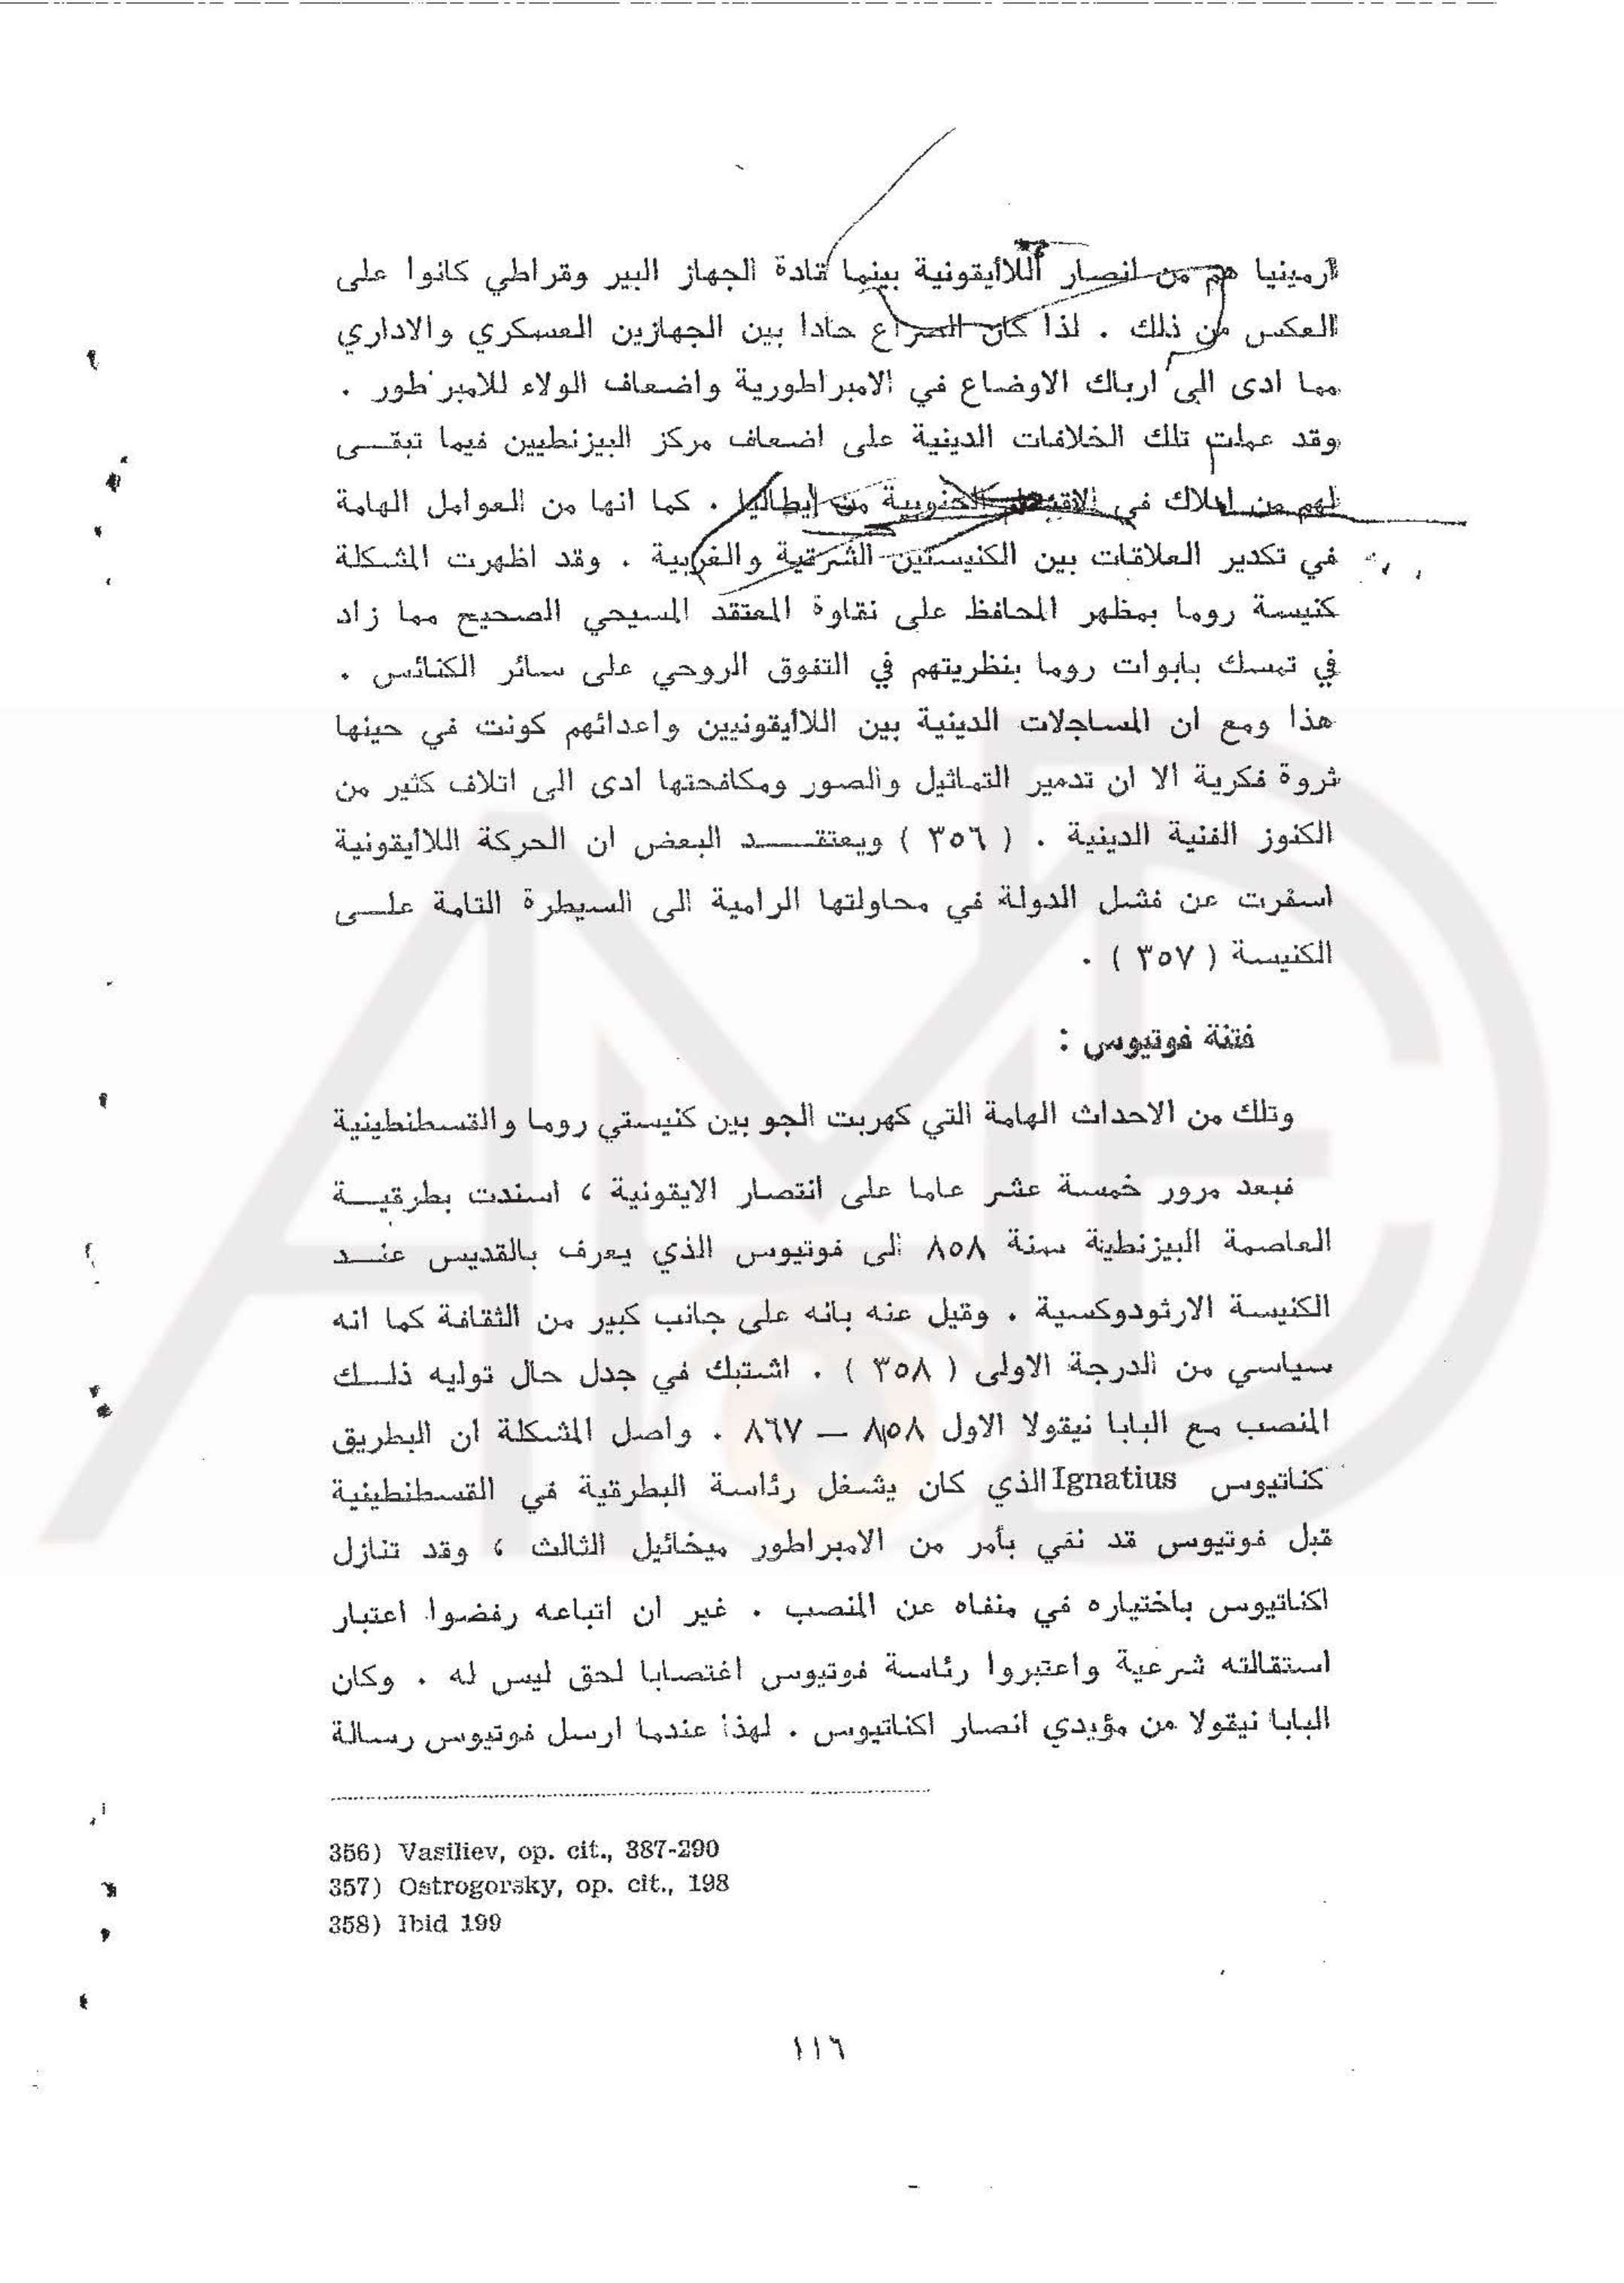 ارمينيا هم من انصار اللاأيقونية بينما قادة الجهاز البير وقراطي كانوا على
العكس من ذلك . لذا كان الصراع حادا بين الجهازين العسكري والاداري
مما ادى الى ارباك الاوضاع في الامبراطورية واضعاف الولاء للامبر طور .
وقد عملت تلك الخلافات الدينية على اضعاف مركز البيزنطيين فيما تبقـــى
لهم من املاك في الجنوبية من إيطاليا . كما انها من العوامل الهامة
في تكدير العلاقات بين الكنيستين الشرقية والغربية . وقد اظهرت المشكلة
كنيسة روما بمظهر المحافظ على نقاوة المعتقد المسيحي الصحيح مما زاد
في تمسك بابوات روما بنظريتهم في التفوق الروحي على سائر الكنائس .
هذا ومع ان المساجلات الدينية بين اللاأيقونيين واعدائهم كونت في حينها
ثروة فكرية الا ان تدمير التماثيل والصور ومكافحتها ادى الى اتلاف كثير من
الكنوز الفنية الدينية . ( ٣٥٦ ) ويعتقـــــد البعض ان الحركة اللاأيقونية
اسفرت عن فشل الدولة في محاولتها الرامية الى السيطرة التامة علـــى
الكنيسة ( ٣٥٧ ) .
فتنة فوتيوس :
وتلك من الاحداث الهامة التي كهربت الجو بين كنيستي روما والقسطنطينية
فبعد مرور خمسة عشر عاما على انتصار الايقونية ، اسندت بطرقيـــة
العاصمة البيزنطية سنة ٨٥٨ الى فوتيوس الذي يعرف بالقديس عنـــد
الكنيسة الارثودوكسية . وقيل عنه بانه على جانب كبير من الثقافة كما انه
سياسي من الدرجة الاولى ( ٣٥٨ ) . اشتبك في جدل حال توليه ذلــك
المنصب مع البابا نيقولا الاول ٨٥٨ — ٨٦٧ . واصل المشكلة ان البطريق
كناتيوس Ignatius الذي كان يشغل رئاسة البطرقية في القسطنطينية
قبل فوتيوس قد نفي بأمر من الامبراطور ميخائيل الثالث ، وقد تنازل
اكناتيوس باختياره في منفاه عن المنصب . غير ان اتباعه رفضوا اعتبار
استقالته شرعية واعتبروا رئاسة فوتيوس اغتصابا لحق ليس له . وكان
البابا نيقولا من مؤيدي انصار اكناتيوس . لهذا عندما ارسل فوتيوس رسالة
356) Vasiliev, op. cit., 387-290
357) Ostrogorsky, op. cit., 198
358) Ibid 199
١١٦